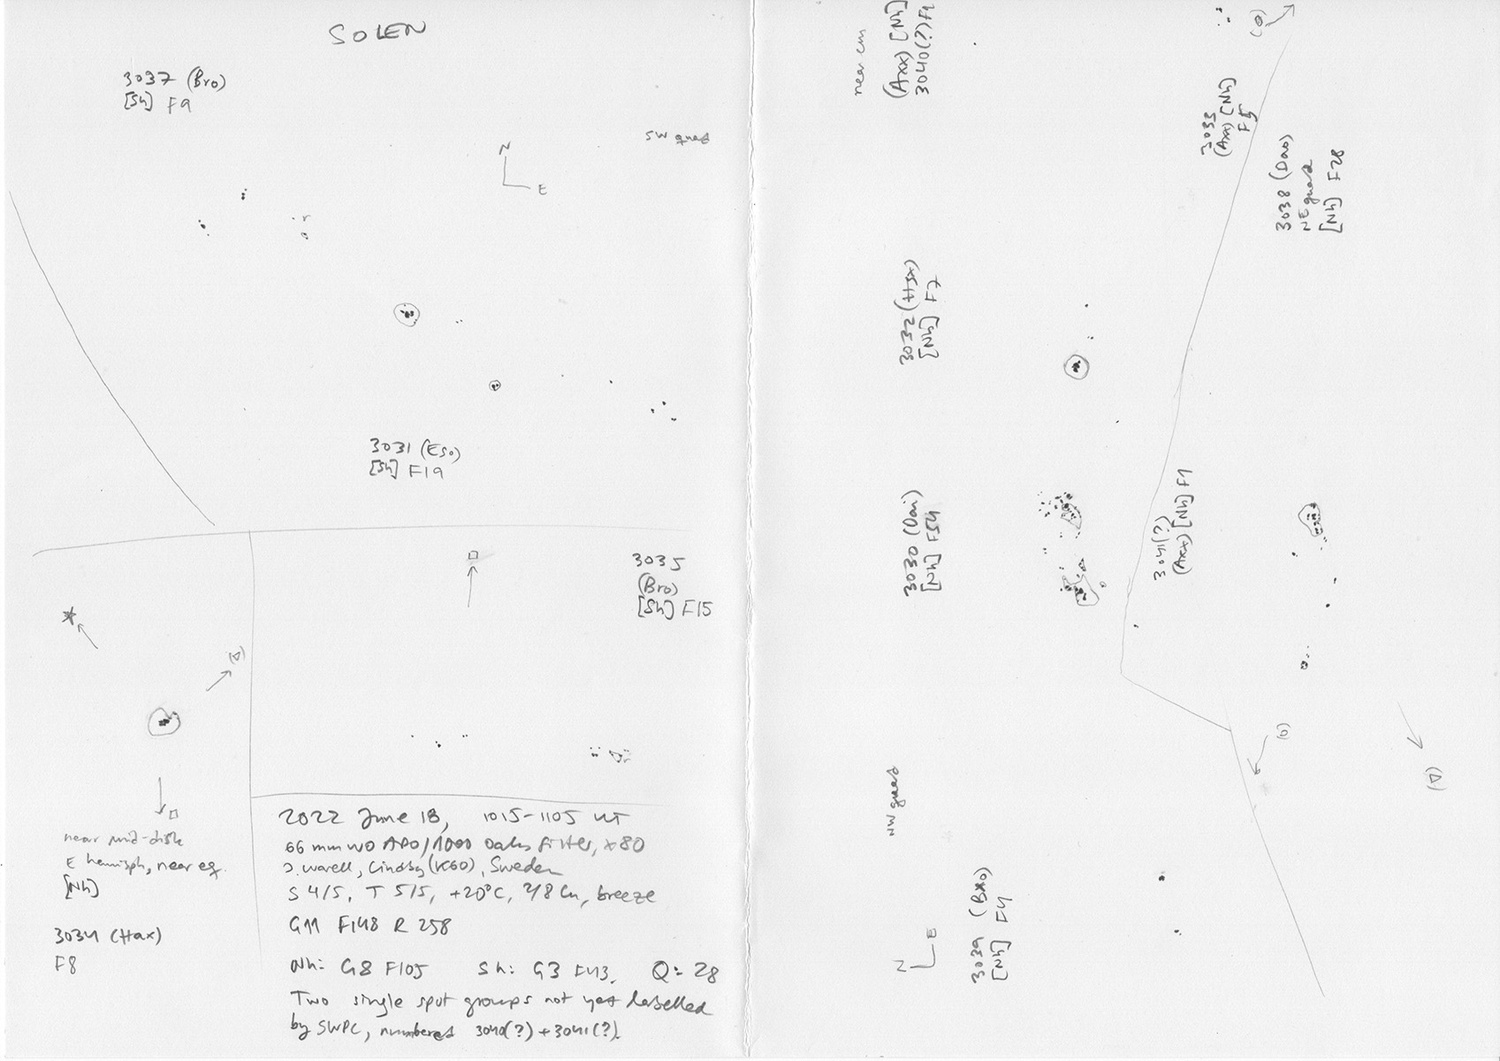 SOLEN
3037 (Bro)
[Sh] F9
SW quad
N
E
3031 (Eso)
[Sh] F19
3035
(Bro)
[Sh] F15
near mid-disk
E hemisph, near eq.
[Nh]
3034 (Hax)
F8
2022 June 18, 1015-1105 UT
66 mm WO APO/1000 Oaks filter, x80
J. Warell, Lindby (K60), Sweden
S 4/5, T 5/5, +20°C, 7/8 Cu, breeze
G11 F148 R 258
Nh: G8 F105 Sh: G3 F43. Q: 28
Two single spot groups not yet labelled
by SWPC, numbered 3040(?) + 3041(?).
near cm
(Axx) [Nh]
3040(?) F1
3033
(Axx) [Nh]
F5
3038 (Dao)
NE quad
[Nh] F28
3032 (Hsx)
[Nh] F7
3030 (Dai)
[Nh] F54
3041(?)
(Axx) [Nh] F1
NW quad
N
E
3039 (Bxo)
[Nh] F4